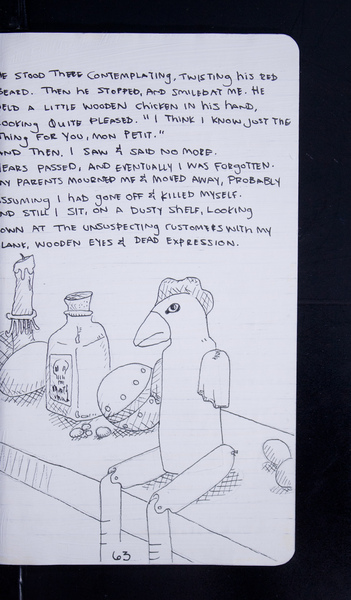 HE STOOD THERE CONTEMPLATING, TWISTING HIS RED
BEARD. THEN HE STOPPED, AND SMILED AT ME. HE
HELD A LITTLE WOODEN CHICKEN IN HIS HAND,
LOOKING QUITE PLEASED. "I THINK I KNOW JUST THE
THING FOR YOU, MON PETIT."
AND THEN, I SAW & SAID NO MORE.
YEARS PASSED, AND EVENTUALLY I WAS FORGOTTEN.
MY PARENTS MOURNED ME & MOVED AWAY, PROBABLY
ASSUMING I HAD GONE OFF & KILLED MYSELF.
AND STILL I SIT, ON A DUSTY SHELF, LOOKING
DOWN AT THE UNSUSPECTING CUSTOMERS WITH MY
BLANK, WOODEN EYES & DEAD EXPRESSION.
63